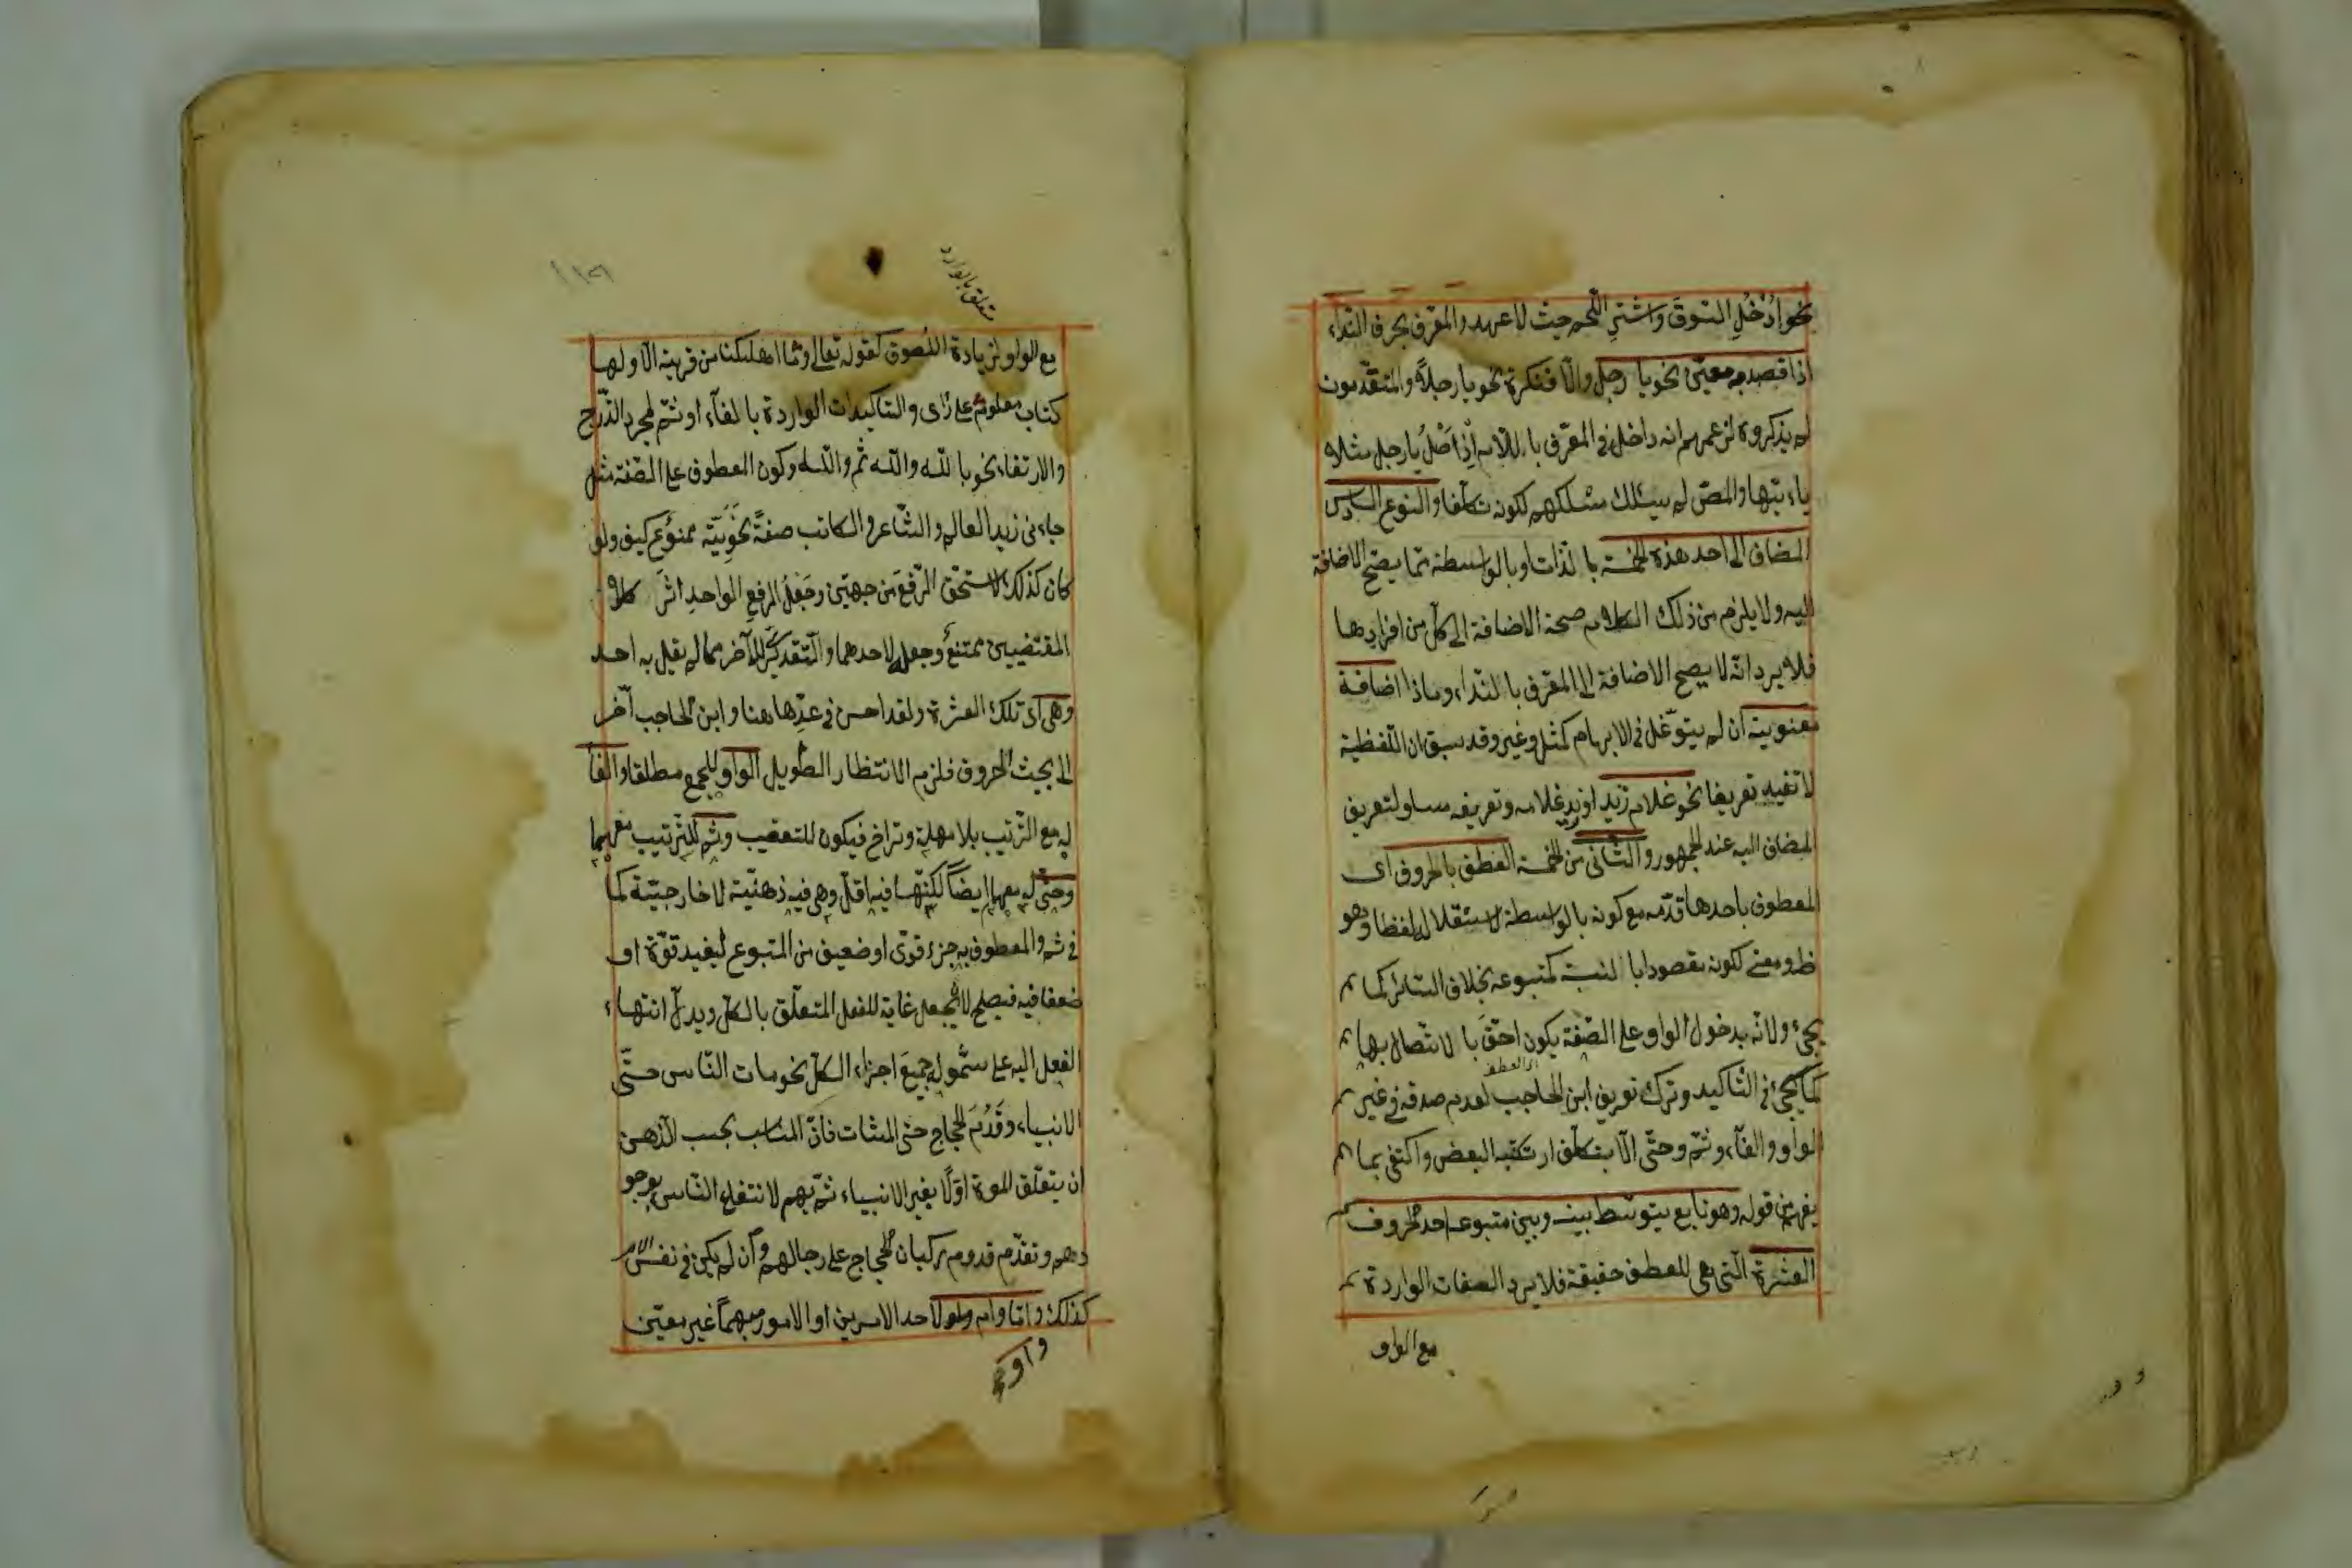 نحو ادْخُلِ السّوقَ واشترِ اللّحم حيث لا عهد والمعّرف بحرف النّداء
اذا قصد به معيّن نحو يا رجل والّا فنكرة نحو يا رجلاً والمتقدّمون
لم يذكروه لزعمهم انه داخل في المعرّف باللّام اِذْ اَصْلُ يا رجل مثلا
يا ايّها والمصّ لم يسلك مسلكهم لكونه تكلّفا والنّوع السادس
المضاف الى احد هذه الخمسة بالذّات او بالواسطة ممّا يصحّ الاضافة
اليه ولا يلزم من ذلك الكلام صحة الاضافة الى كلّ من افرادها
فلا يرد انّه لا يصح الاضافة الى المعّرف بالنّداء وماذا اضافة
معنوية ان لم يتوّغل في الابهام كمثل وغير وقد سبق ان اللّفظية
لا تفيد تعريفا نحو غلام زيد او يد غلامه وتعريفه مساو لتعريف
المضاف اليه عند الجمهور والثّانى من الخمسة العطف بالحروف اى
المعطوف باحدها قدّمه مع كونه بالواسطة لاستقلاله لفظا وهو
ظ ومعنى لكونه مقصودا بالنسبة كمتبوعه بخلاف السّائر كما
يجئ ولانّه بدخول الواو على الصّفة يكون احقّ بالاتّصال بها
اى العطف
كما يجئ في التّاكيد وترك تعريف ابن الحاجب لعدم صدقه في غير
الواو والفآء وثمّ وحتّى الّا بتكلّف ارتكبه البعض واكتفى بما
يفهم من قوله وهو تابع يتوسّط بينه وبين متبوعه احد الحروف
العشرة الّتى هي للعطف حقيقة فلا يرد الصفات الواردة
مع الواو
متعلق بالوارد
مع الواو لزيادة اللّصوق كقوله تعالى وما اهلكنا من قرية الّا ولها
كتاب معلوم على راى والتاكيدات الواردة بالفآء او ثمّ لمجرد التّدرّج
والارتقاء نحو بالله والله ثم والله وكون المعطوف على الصّفة مثل
جاءنى زيد العالم والشّاعر والكاتب صفةً نَحْوِيّة ممنوع كيف ولو
كان كذلك لاستحّق الرّفعَ من جهتين وجَعْلُ الرفعِ الواحدِ اثرَ كلا
المقتضيين ممتنعٌ وجعله لاحدهما والتّقدير للآخر مما لم يقل به احد
وهى اى تلك العشرة ولقد احسن في عدّها هنا وابن الحاجب آخّر
الى بحث الحروف فلزم الانتظار الطّويل الواو للجمع مطلقا والفآ
له مع التّرتيب بلا مهلة وتراخ فيكون للتعقيب وثم للتّرتيب معهما
وحتّى له معهما ايضاً لكنّها فيه اقلّ وهى فيه ذهنيّة لا خارجيّة كما
في ثم والمعطوف به جزء قوّى او ضعيف من المتبوع ليفيد قوّة او
ضعفا فيه فيصلح لان يجعل غاية للفعل المتعلّق بالكلّ ويدلّ انتهاء
الفعل اليه على شموله جميعَ اجزاء الكلّ نحو مات النّاس حتّى
الانبياء وقَدُمَ الحجاج حتى المشات فانّ المناسب بحسب الذّهن
ان يتعلّق الموت اوّلاً بغير الانبياء ثمّ بهم لانتفاء النّاس بوجو
دهم وتقدّم قدوم ركبان الحجاج على رجالهم وان لم يكن في نفس الامر
كذلك وامّا وام واو لاحد الامرين او الامور مبهماً غير معيّن
واو